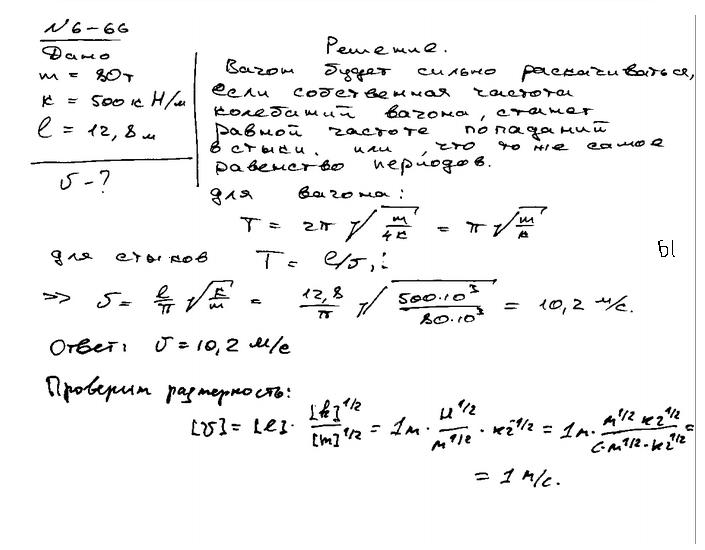 N 6-66
Дано
m = 80 т
к = 500 к Н/м
l = 12,8 м
υ - ?
Решение.
Вагон будет сильно раскачиваться,
если собственная частота
колебаний вагона, станет
равной частоте попаданий
в стыки. или, что то же самое
равенство периодов.
для вагона:
T = 2π √(m/4к) = π √(m/к)
для стыков T = l/υ,:
=> υ = l/π √(к/m) = 12,8/π √(500·10³/80·10³) = 10,2 м/с.
Ответ: υ = 10,2 м/с
Проверим размерность:
[υ] = [l]· [k]^1/2/[m]^1/2 = 1м · Н^1/2/м^1/2 · кг^-1/2 = 1м· м^1/2 кг^1/2/с·м^1/2·кг^1/2 =
= 1 м/с.
ы